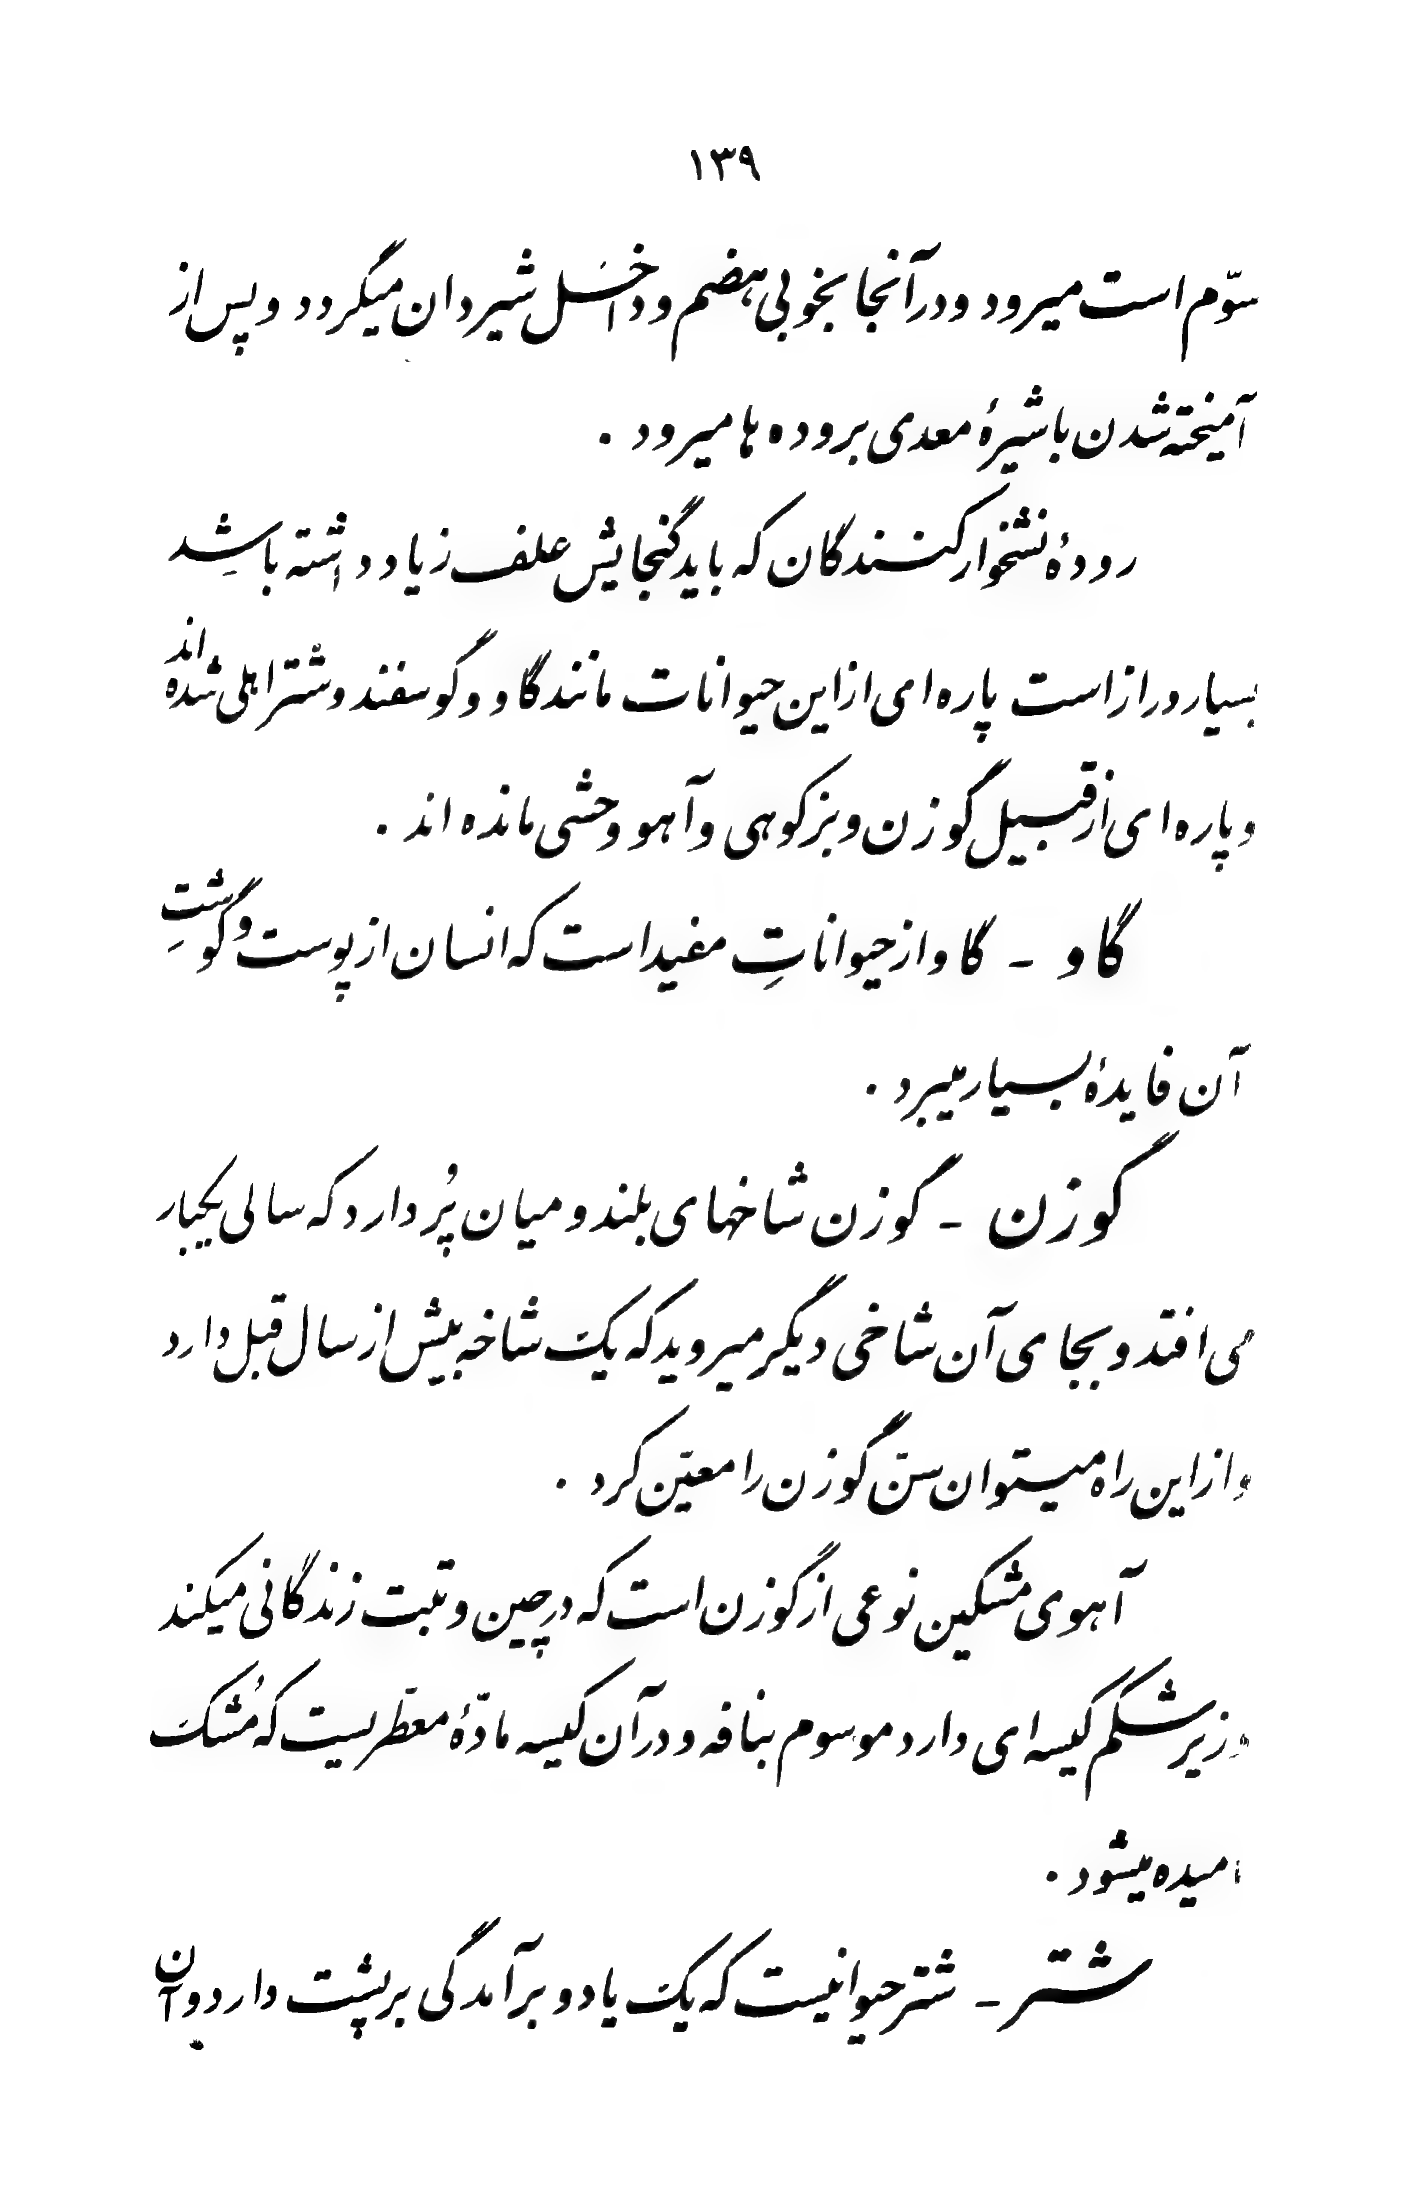 ۱۳۹
سوّم است میرود ودر آنجا بخوبی هضم وداخَل شیردان میگردد و پس از
آمیخته شدن با شیرۀ معدی بروده ها میرود .
رودۀ نشخوار کنندگان که باید گنجایش علف زیاد داشته باشِد
بسیار دراز است پاره ای از این حیوانات مانند گاو و گوسفند و شتر اهلی شده اند
و پاره ای از قبیل گوزن و بز کوهی و آهو وحشی مانده اند .
گاو - گاو از حیواناتِ مفید است که انسان از پوست و گوشتِ
آن فایدۀ بسیار میبرد .
گوزن - گوزن شاخهای بلند و میان پُر دارد که سالی یکبار
می افتد و بجای آن شاخی دیگر میروید که یک شاخه بیش از سال قبل دارد
و از این راه میتوان سنّ گوزن را معیّن کرد .
آهوی مشکین نوعی از گوزن است که در چین و تبت زندگانی میکند
و زیر شکم کیسه ای دارد موسوم بنافه و در آن کیسه مادّۀ معطّریست که مُشک
امیده میشود .
شتر - شتر حیوانیست که یک یا دو بر آمدگی بر پشت دارد و آن